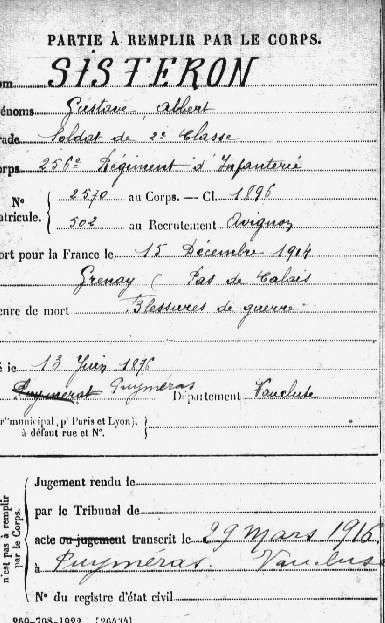 PARTIE À REMPLIR PAR LE CORPS.
om SISTERON
énoms Gustave Albert
rade Soldat de 2e Classe
orps 256e Régiment d'Infanterie
N° { 2570 au Corps. — Cl. 1896
atricule. { 502 au Recrutement Avignon
ort pour la France le 15 Décembre 1914
Grenay (Pas de Calais
enre de mort Blessures de guerre
é le 13 Juin 1876
Puymerat Puyméras Département Vaucluse
r municipal, pr Paris et Lyon),
à défaut rue et N°.
Jugement rendu le
par le Tribunal de
acte ou jugement transcrit le 29 Mars 1916
à Puyméras. Vaucluse
N° du registre d'état civil
n'est pas à remplir
par le Corps.